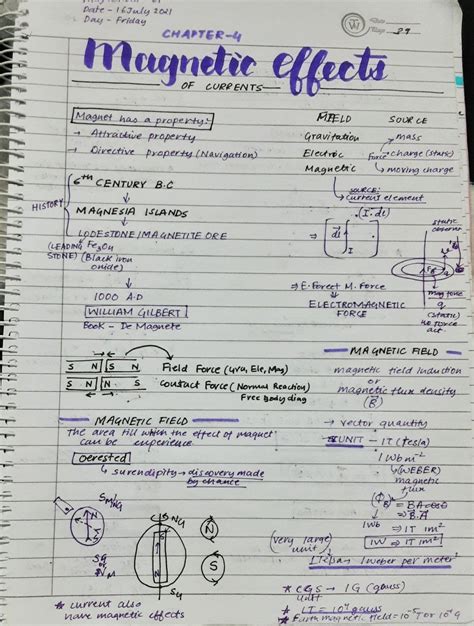 Date - 16 July 2021
Day - Friday
39
CHAPTER-4
Magnetic effects
OF CURRENTS
Magnet has a property:-
→ Attractive property
→ Directive property (Navigation)
FIELD SOURCE
Gravitation mass
Electric charge (static)
force
Magnetic moving charge
SOURCE:
current element
(I.dl)
HISTORY
6th CENTURY B.C
MAGNESIA ISLANDS
LODESTONE/MAGNETITE ORE
(LEADING STONE)
Fe3O4
(Black iron oxide)
1000 A.D
WILLIAM GILBERT
Book - De Magnete
⇒ dl I
static
⇒ E. Force + M. Force
ELECTROMAGNETIC FORCE
mag force
q
(static)
S N S N
S N N S
Field Force (Gra, Ele, Mag)
Contact Force (Normal Reaction)
Free body diag
MAGNETIC FIELD
magnetic field induction
or
magnetic flux density
(B)
MAGNETIC FIELD
The area till which the effect of magnet
can be experience
→ vector quantity
UNIT - 1T (tesla)
1 Wb m-2
(WEBER)
magnetic
flux
Oersted
surendipity → discovery made
by chance
⇒ B.A
1Wb ⇒ 1T 1m2
1W ⇒ 1T 1m2
(very large)
unit
1 weber per meter2
* CGS → 1G (gauss)
unit
* 1T = 104 gauss
* Earth magnetic field = 10-5 T
SM/NG
N
S
SG
or
NM
S NG
N
SG
N
S
* current also
have magnetic effects